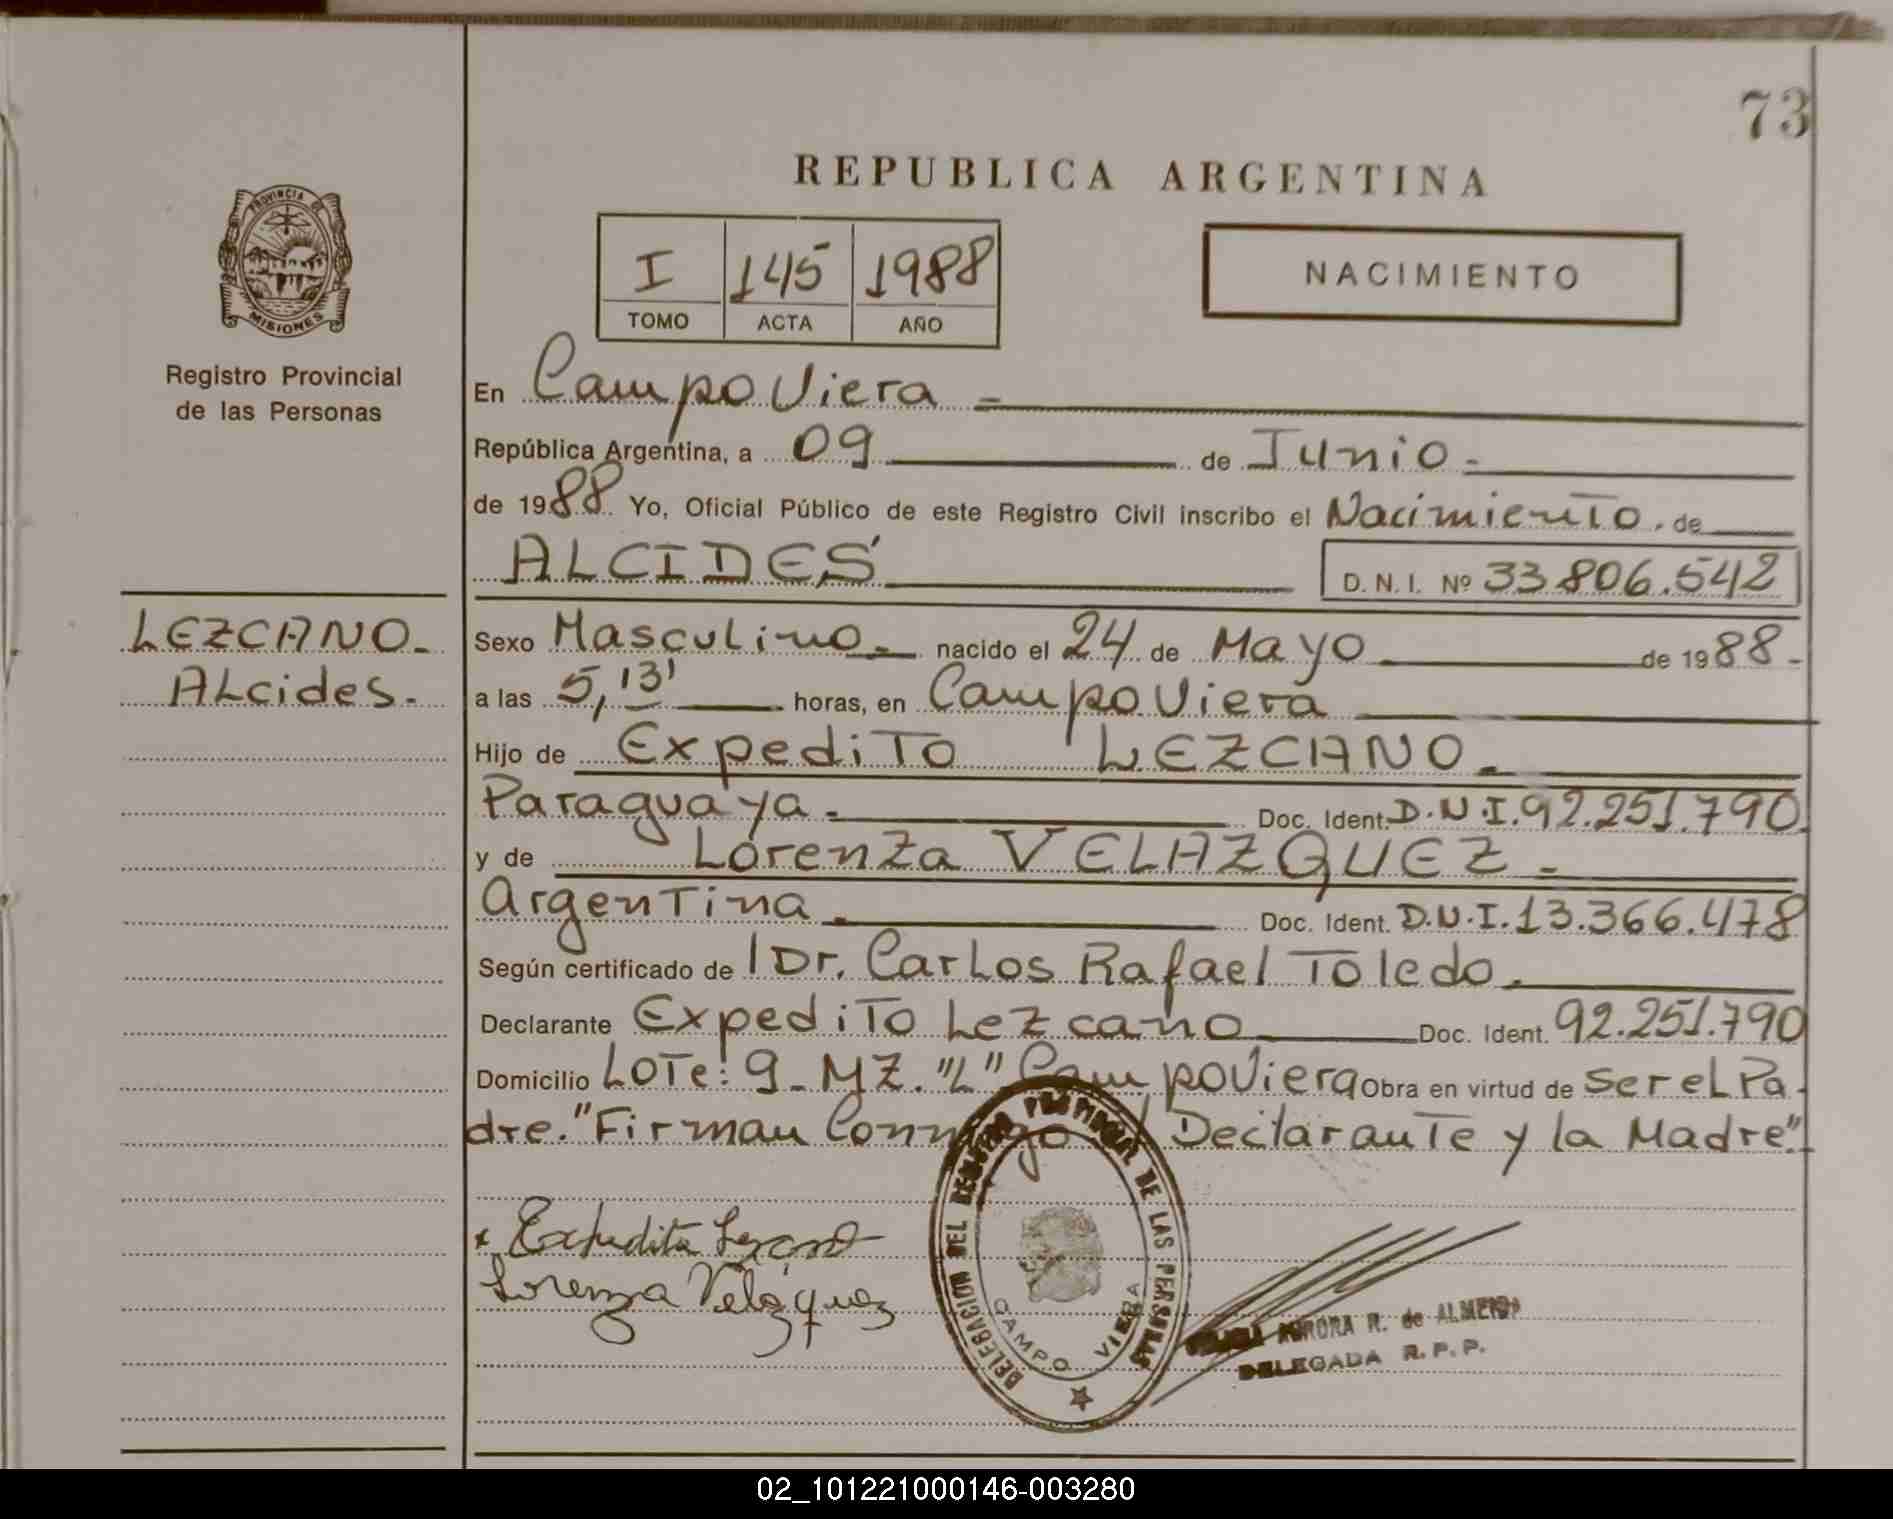 73
REPUBLICA ARGENTINA
PROVINCIA DE
MISIONES
I 145 1988
TOMO ACTA AÑO
NACIMIENTO
Registro Provincial
de las Personas
En Campo Viera -
República Argentina, a 09 de Junio -
de 1988 Yo, Oficial Público de este Registro Civil inscribo el Nacimiento. de
ALCIDES
D. N. I. Nº 33.806.542
LEZCANO.
ALcides.
Sexo Masculino - nacido el 24 de Mayo de 1988 -
a las 5,13' horas, en Campo Viera
Hijo de Expedito LEZCANO -
Paraguaya - Doc. Ident. D.N.I. 92.251.790
y de Lorenza VELAZQUEZ -
Argentina. Doc. Ident. D.N.I. 13.366.478
Según certificado de l Dr. Carlos Rafael Toledo.
Declarante Expedito Lezcano Doc. Ident. 92.251.790
Domicilio LOTe: 9 - MZ. "L" Campo Viera Obra en virtud de ser el Pa-
dre. "Firman Conmigo l Declarante y la Madre".
Lorenza Velázquez
DELEGACION DEL REGISTRO PROVINCIAL DE LAS PERSONAS
CAMPO VIERA
AURORA R. de ALMEIDA
DELEGADA R. P. P.
02_101221000146-003280